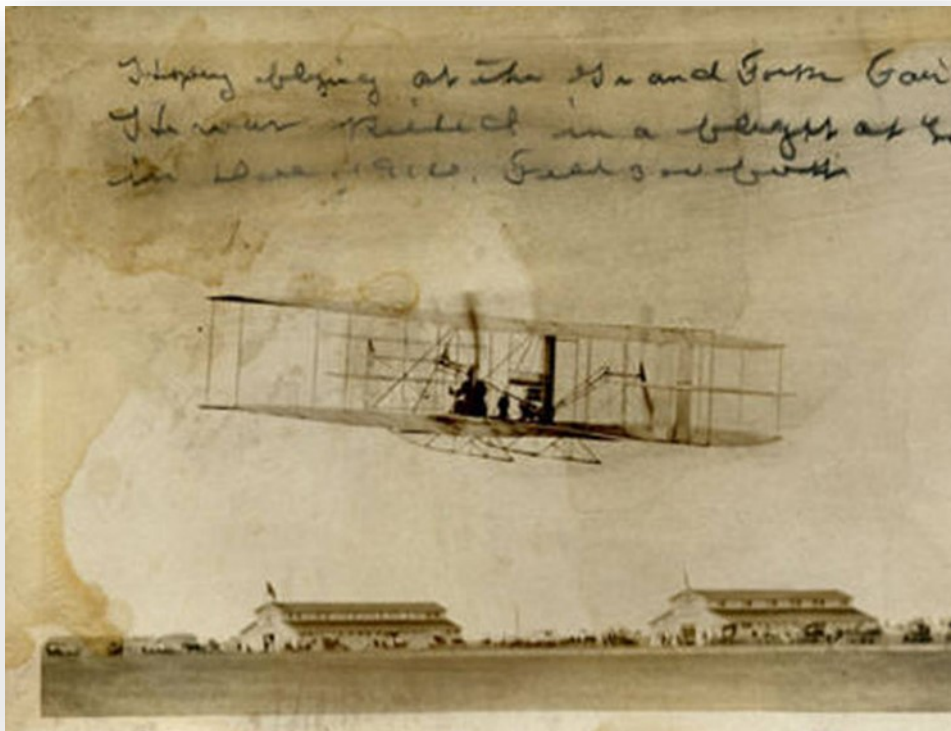 Hoxsey flying at the Grand Forks Fair
He was killed in a flight at
in Dec. 1910. Fell